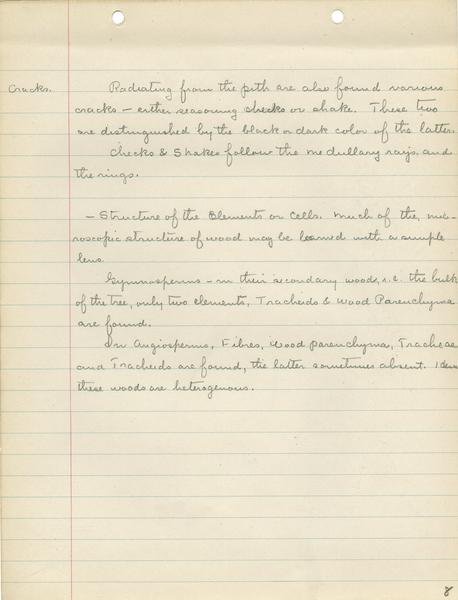 Cracks. Radiating from the pith are also found various
cracks – either seasoning checks or shake. These two
are distinguished by the black or dark color of the latter.
Checks & Shakes follow the medullary rays and
the rings.
– Structure of the Elements or Cells. Much of the mic-
roscopic structure of wood may be learned with a simple
lens.
Gymnosperms – in their secondary woods, i.e. the bulk
of the tree, only two elements, Tracheids & Wood Parenchyma
are found.
In Angiosperms, Fibres, Wood parenchyma, Tracheae
and Tracheids are found, the latter sometimes absent.
these woods are heterogenous.
8